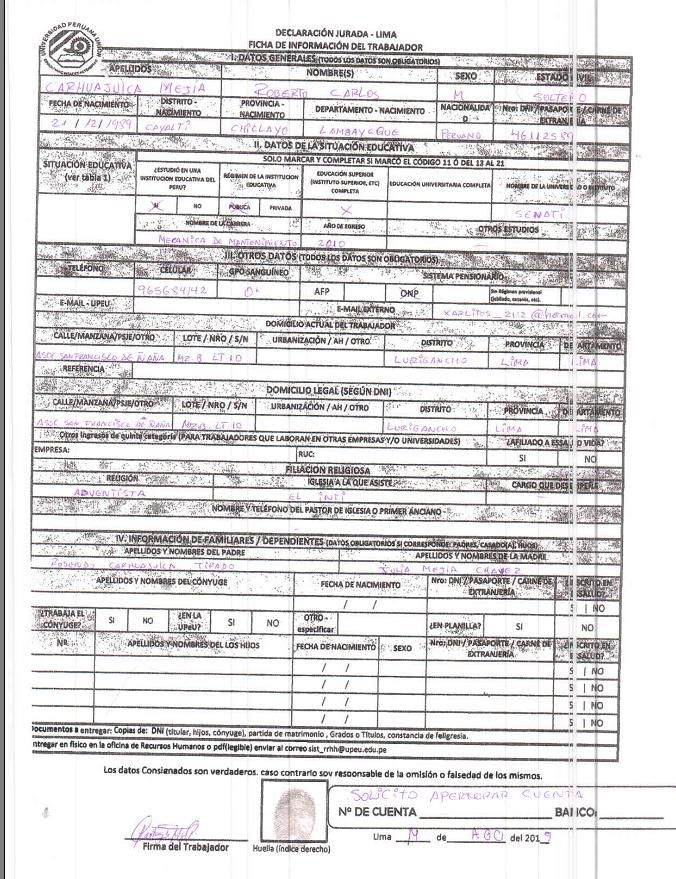 UNIVERSIDAD PERUANA UNIÓN
DECLARACIÓN JURADA - LIMA
FICHA DE INFORMACIÓN DEL TRABAJADOR
I. DATOS GENERALES (TODOS LOS DATOS SON OBLIGATORIOS)
APELLIDOS NOMBRE(S) SEXO ESTADO CIVIL
CARHUAJULCA MEJIA ROBERTO CARLOS M SOLTERO
FECHA DE NACIMIENTO DISTRITO - NACIMIENTO PROVINCIA - NACIMIENTO DEPARTAMENTO - NACIMIENTO NACIONALIDAD Nro: DNI / PASAPORTE / CARNÉ DE EXTRANJERÍA
21 / 12 / 1989 CAYALTI CHICLAYO LAMBAYEQUE PERUANO 46112589
II. DATOS DE LA SITUACIÓN EDUCATIVA
SITUACIÓN EDUCATIVA (ver tabla 1)
SOLO MARCAR Y COMPLETAR SI MARCÓ EL CÓDIGO 11 Ó DEL 13 AL 21
¿ESTUDIÓ EN UNA INSTITUCIÓN EDUCATIVA DEL PERU? RÉGIMEN DE LA INSTITUCIÓN EDUCATIVA EDUCACIÓN SUPERIOR (INSTITUTO SUPERIOR, ETC) COMPLETA EDUCACIÓN UNIVERSITARIA COMPLETA NOMBRE DE LA UNIVERSIDAD O INSTITUTO
SI NO PÚBLICA PRIVADA X SENATI
NOMBRE DE LA CARRERA AÑO DE EGRESO OTROS ESTUDIOS
MECANICA DE MANTENIMIENTO 2010 —
III. OTROS DATOS (TODOS LOS DATOS SON OBLIGATORIOS)
TELÉFONO CELULAR GPO SANGUÍNEO SISTEMA PENSIONARIO
965684142 O+ AFP ONP Sin Régimen provisional (jubilado, cesante, etc).
E-MAIL - UPEU E-MAIL EXTERNO xarlitos_2112@hotmail.com
DOMICILIO ACTUAL DEL TRABAJADOR
CALLE/MANZANA/PSJE/OTRO LOTE / NRO / S/N URBANIZACIÓN / AH / OTRO DISTRITO PROVINCIA DEPARTAMENTO
ASOC SAN FRANCISCO DE ÑAÑA MZ.B LT 10 LURIGANCHO LIMA LIMA
REFERENCIA
DOMICILIO LEGAL (SEGÚN DNI)
CALLE/MANZANA/PSJE/OTRO LOTE / NRO / S/N URBANIZACIÓN / AH / OTRO DISTRITO PROVINCIA DEPARTAMENTO
ASOC SAN FRANCISCO DE ÑAÑA MZ.B LT 10 LURIGANCHO LIMA LIMA
Otros ingresos de quinta categoría (PARA TRABAJADORES QUE LABORAN EN OTRAS EMPRESAS Y/O UNIVERSIDADES) ¿AFILIADO A ESSALUD VIDA?
EMPRESA: RUC: SI NO
FILIACIÓN RELIGIOSA
RELIGIÓN IGLESIA A LA QUE ASISTE CARGO QUE DESEMPEÑA
ADVENTISTA EL INTI —
NOMBRE Y TELÉFONO DEL PASTOR DE IGLESIA O PRIMER ANCIANO
IV. INFORMACIÓN DE FAMILIARES / DEPENDIENTES (DATOS OBLIGATORIOS SI CORRESPONDE: PADRES, CASADO(A), HIJOS)
APELLIDOS Y NOMBRES DEL PADRE APELLIDOS Y NOMBRES DE LA MADRE
ROSENDO CARHUAJULCA TIRADO JULIA MEJIA CHAVEZ
APELLIDOS Y NOMBRES DEL CÓNYUGE FECHA DE NACIMIENTO Nro: DNI / PASAPORTE / CARNÉ DE EXTRANJERÍA ¿INSCRITO EN ESSALUD?
/ / SI | NO
¿TRABAJA EL CÓNYUGE? SI NO ¿EN LA UPeU? SI NO OTRO - especificar ¿EN PLANILLA? SI NO
Nº APELLIDOS Y NOMBRES DE LOS HIJOS FECHA DE NACIMIENTO SEXO Nro: DNI / PASAPORTE / CARNÉ DE EXTRANJERÍA ¿INSCRITO EN ESSALUD?
/ / S | NO
/ / S | NO
/ / S | NO
/ / S | NO
Documentos a entregar: Copias de: DNI (titular, hijos, cónyuge), partida de matrimonio , Grados o Títulos, constancia de feligresía.
ntregar en físico en la oficina de Recursos Humanos o pdf(legible) enviar al correo sist_rrhh@upeu.edu.pe
Los datos Consignados son verdaderos, caso contrario soy responsable de la omisión o falsedad de los mismos.
SOLICITO APERTURAR CUENTA
Nº DE CUENTA BANCO:
Lima de AGO del 2019
Firma del Trabajador Huella (índice derecho)